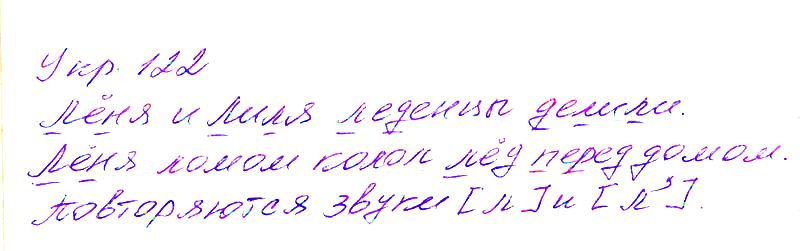 Укр. 122
Лёня и Лиля леденцы делили.
Лёня ломом колол лёд перед домом.
Повторяются звуки [л] и [л'].